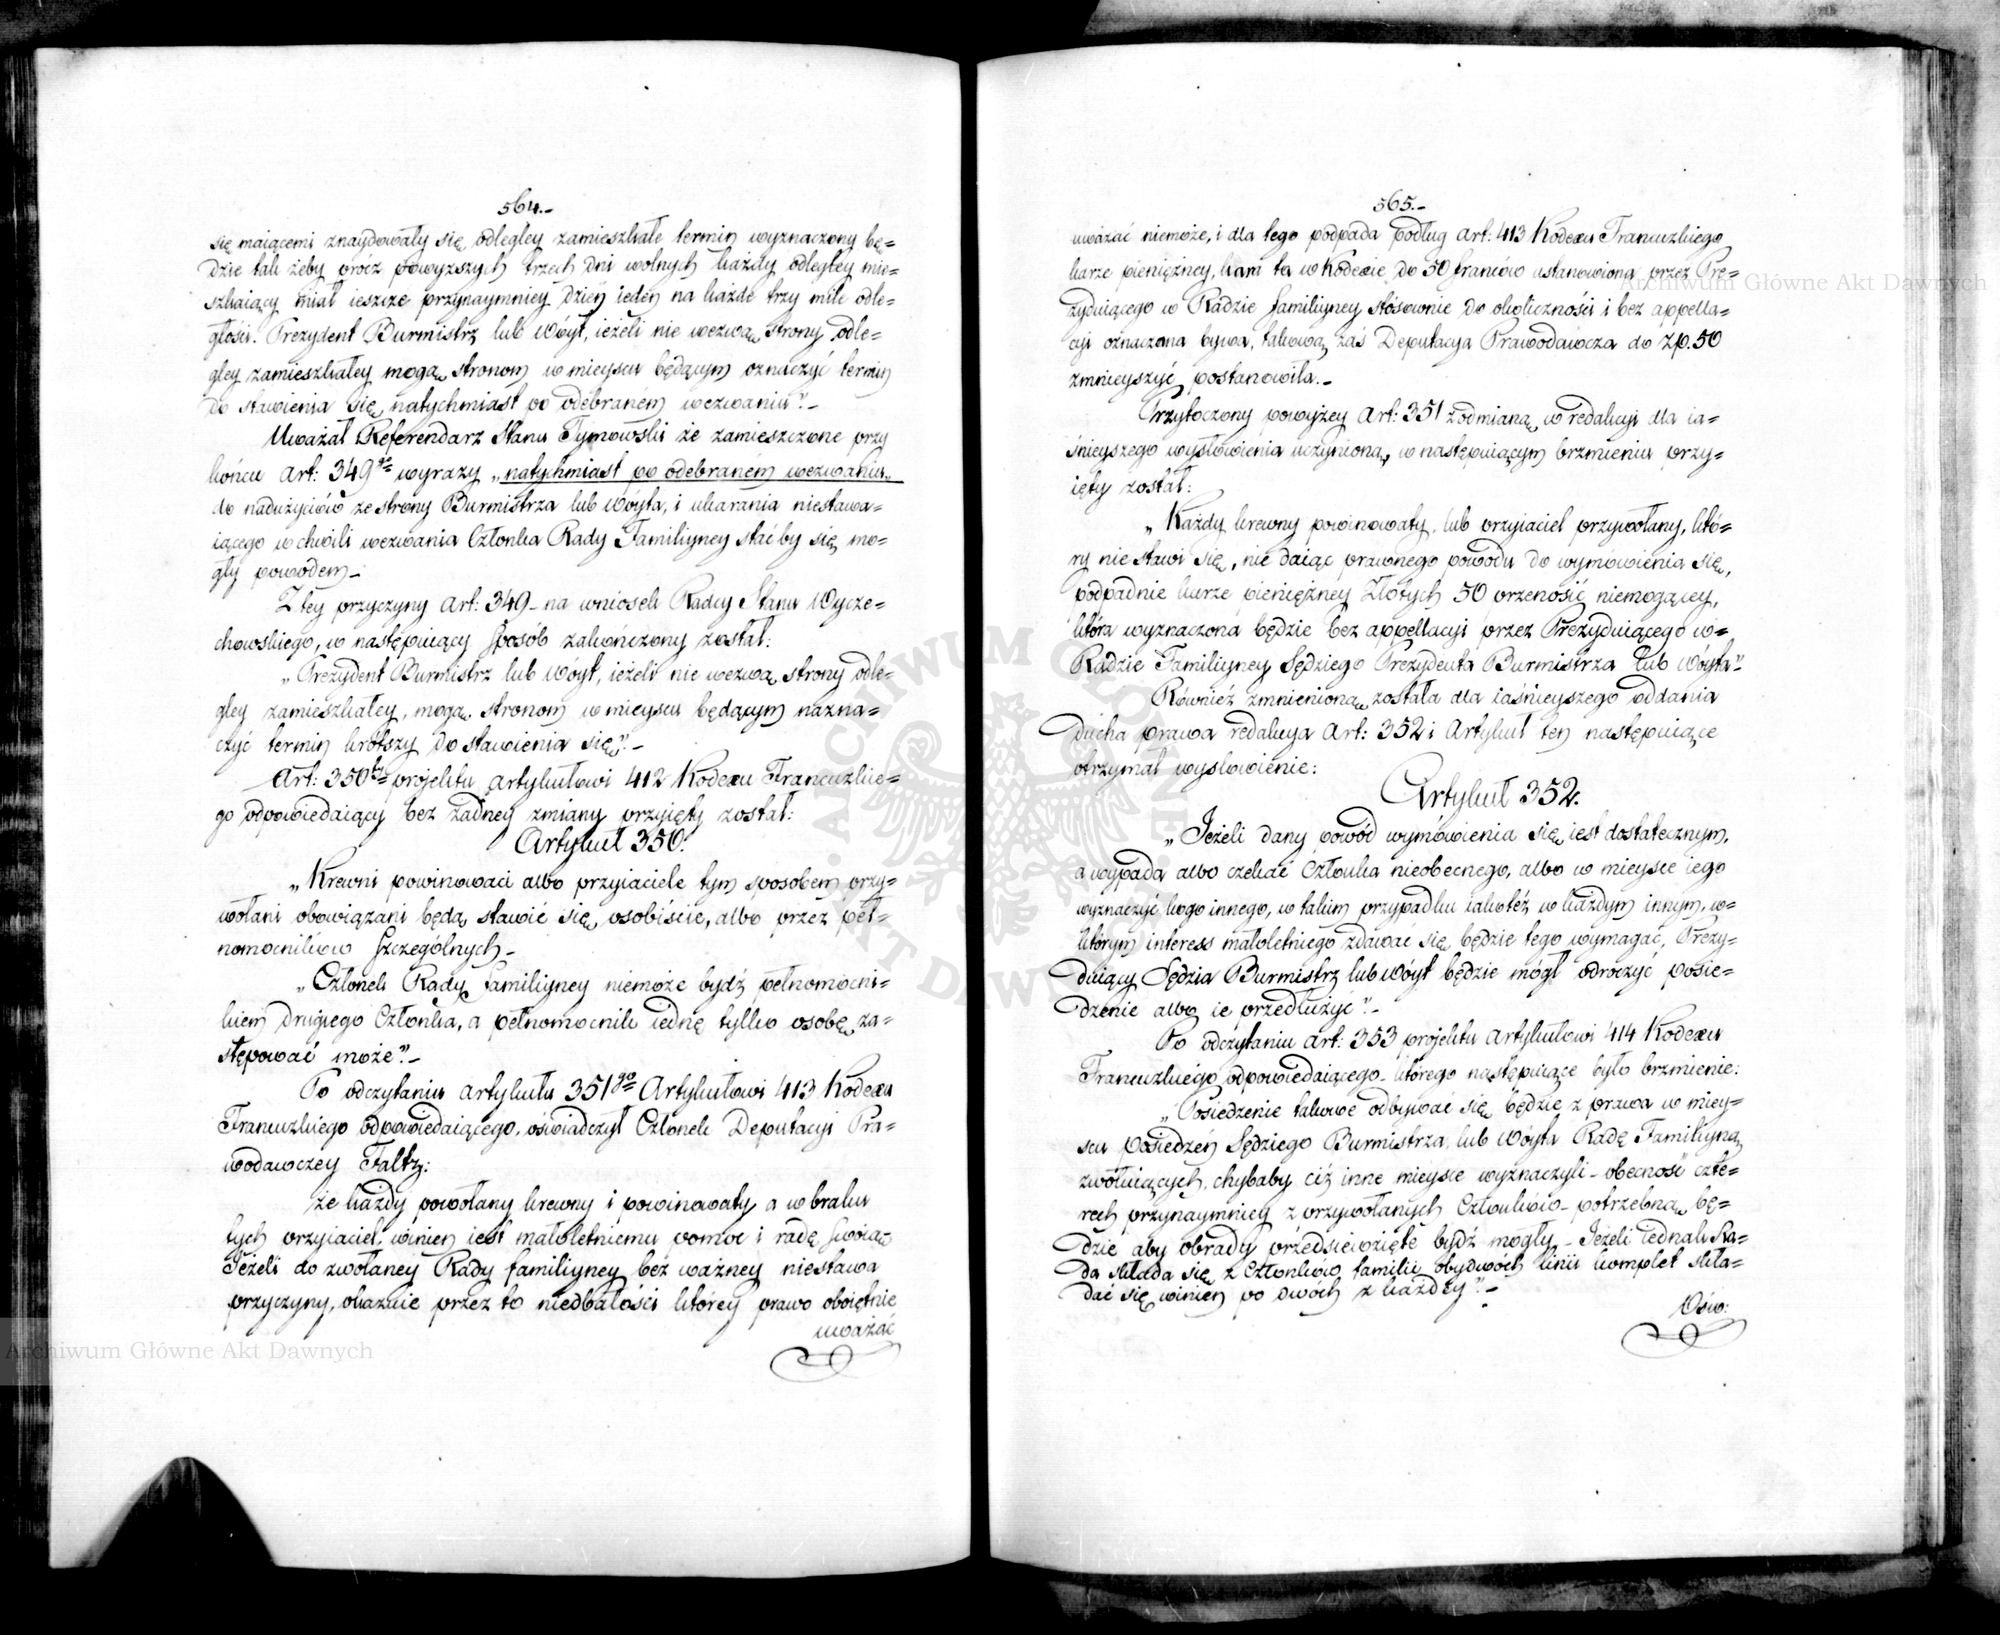 564.-
się maiącemi znaydowały się odległey zamieszkałe termin wyznaczony bę=
dzie tak żeby prócz powyższych trzech dni wolnych każdy odległey mie=
szkaiący miał ieszcze przynaymniey dzień ieden na każde trzy mile odle=
głości. Prezydent Burmistrz lub Wóyt, ieżeli nie wezwą strony odle=
gley zamieszkałey mogą stronom w mieyscu będącym oznaczyć termin
do stawienia się natychmiast po odebraném wezwaniu".-
Uważał Referendarz Stanu Tymowski że zamieszczone przy
końcu Art: 349go wyrazy „natychmiast po odebraném wezwaniu„
do nadużyciów ze strony Burmistrza lub Wóyta, i ukarania niestawa=
iącego w chwili wezwania Członka Rady Familiyney stać by się mo=
gły powodem.-
Z tey przyczyny Art: 349. na wniosek Radcy Stanu Wycze=
chowskiego, w następuiący sposób zakończony został:
„Prezydent Burmistrz lub Wóyt, ieżeli nie wezwą strony odle=
gley zamieszkałey, mogą stronom w mieyscu będącym nazna=
czyć termin krótszy do stawienia się".-
Art: 350ty projektu Artykułowi 412 Kodexu Francuzkie=
go odpowiedaiący bez żadney zmiany przyięty został:
Artykuł 350.
„Krewni powinowaci albo przyiaciele tym sposobem przy=
wołani obowiązani będą stawić się osobiście, albo przez peł=
nomocników szczególnych.-
„Członek Rady familiyney niemoże bydź pełnomocni=
kiem drugiego Członka, a pełnomocnik iednę tylko osobę za=
stępować może".-
Po odczytaniu Artykułu 351go Artykułowi 413 Kodexu
Francuzkiego odpowiedaiącego, oświadczył Członek Deputacyi Pra=
wodawczey Faltz:
że każdy powołany krewny i powinowaty a w braku
tych przyiaciel, winien iest małoletniemu pomoc i radę swoią
Jeżeli do zwołaney Rady familiyney bez ważney niestawa
przyczyny, okazuie przez to niedbałości którey prawo oboiętnie
uważać
565.-
uważać niemoże, i dla tego podpada podług Art: 413 Kodexu Francuzkiego
karze pieniężney, kara ta w Kodexie do 50 franków ustanowiona przez Pre=
zyduiącego w Radzie familiyney stósownie do okoliczności i bez appella=
cyi oznaczana bywa, takową zaś Deputacya Prawodawcza do zp. 50
zmnieyszyć postanowiła.-
Przytoczony powyżey Art: 351 z odmianą w redakcyi dla ia=
śnieyszego wysłowienia uczynioną, w następuiącym brzmieniu przy=
ięty został:
„Każdy krewny powinowaty, lub przyiaciel przywołany, któ=
ry nie stawi się, nie daiąc prawnego powodu do wymówienia się,
podpadnie karze pieniężney Złotych 50 przenosić niemogącey,
która wyznaczoną będzie bez appellacyi przez Prezyduiącego w=
Radzie Familiyney Sędziego Prezydenta Burmistrza lub Wóyta".
Również zmnieniona została dla iaśnieyszego oddania
ducha prawa redakcya Art: 352 i Artykuł ten następuiące
otrzymał wysłowienie:
Artykuł 352.
„Jeżeli dany powód wymówienia się iest dostatecznym,
a wypada albo czekać Członka nieobecnego, albo w mieysce iego
wyznaczyć kogo innego, w takim przypadku iakotéż w każdym innym, w=
którym interess małoletniego zdawać się będzie tego wymagać, Prezy=
duiący Sędzia Burmistrz lub Wóyt będzie mógł odroczyć posie=
dzenie albo ie przedłużyć".-
Po odczytaniu Art: 353 projektu Artykułowi 414 Kodexu
Francuzkiego odpowiedaiącego, którego następuiące było brzmienie:
„Posiedzenie takowe odbywać się będzie z prawa w miey=
scu posiedzeń Sędziego Burmistrza lub Wóyta Radę Familiyną
zwołuiących, chybaby ciż inne mieysce wyznaczyli - obecność czte=
rech przynaymniey z przywołanych Członków potrzebną bę=
dzie aby obrady przedsiewzięte bydź mogły - Jeżeli iednak Ra=
da składa się z Członków familii obydwóch linii komplet skła=
dać się winien po dwóch z każdey".-
Ośw:
Archiwum Główne Akt Dawnych
Archiwum Główne Akt Dawnych